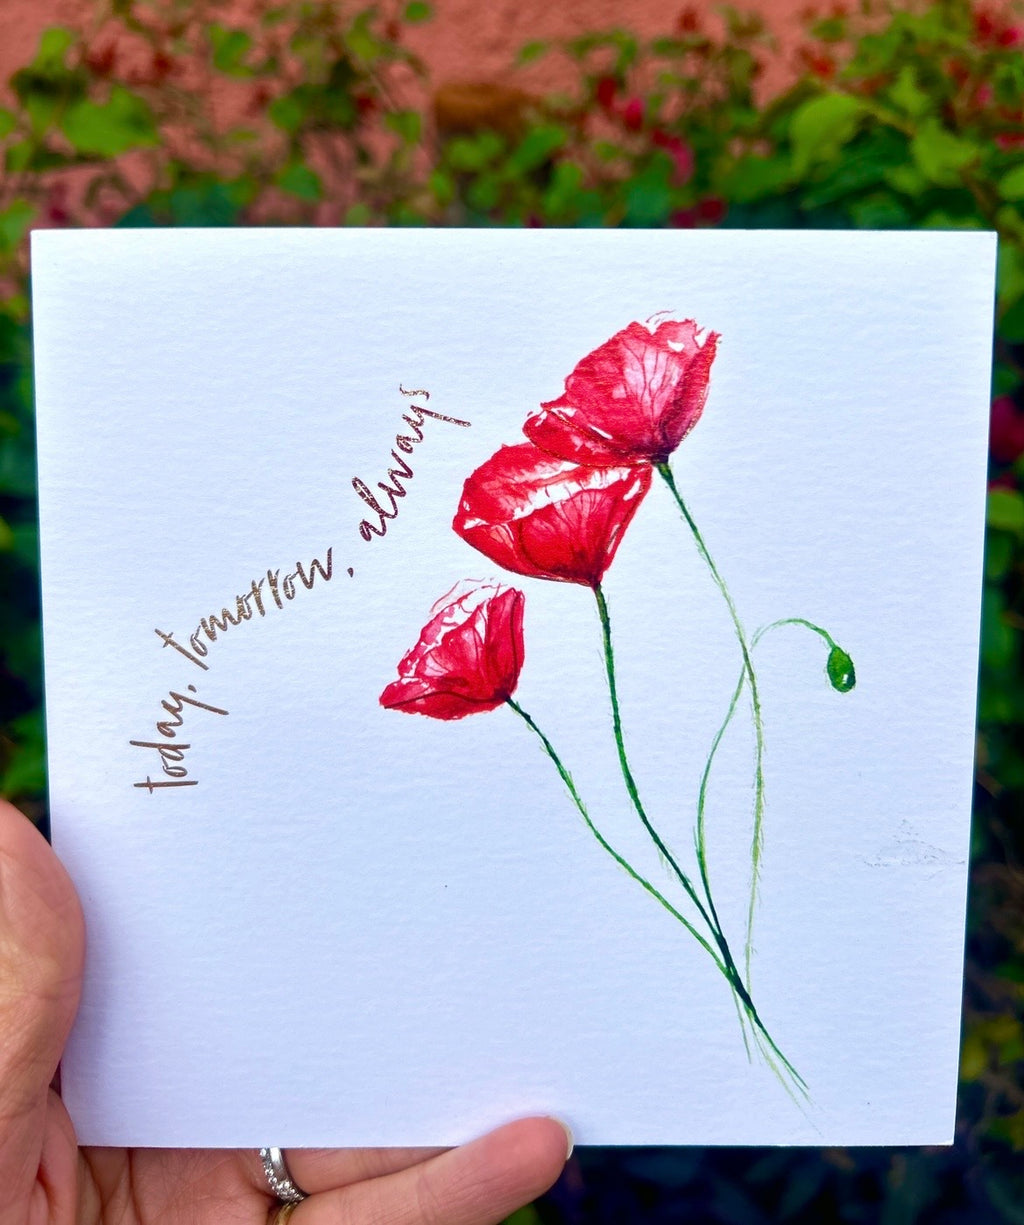 today, tomorrow, always